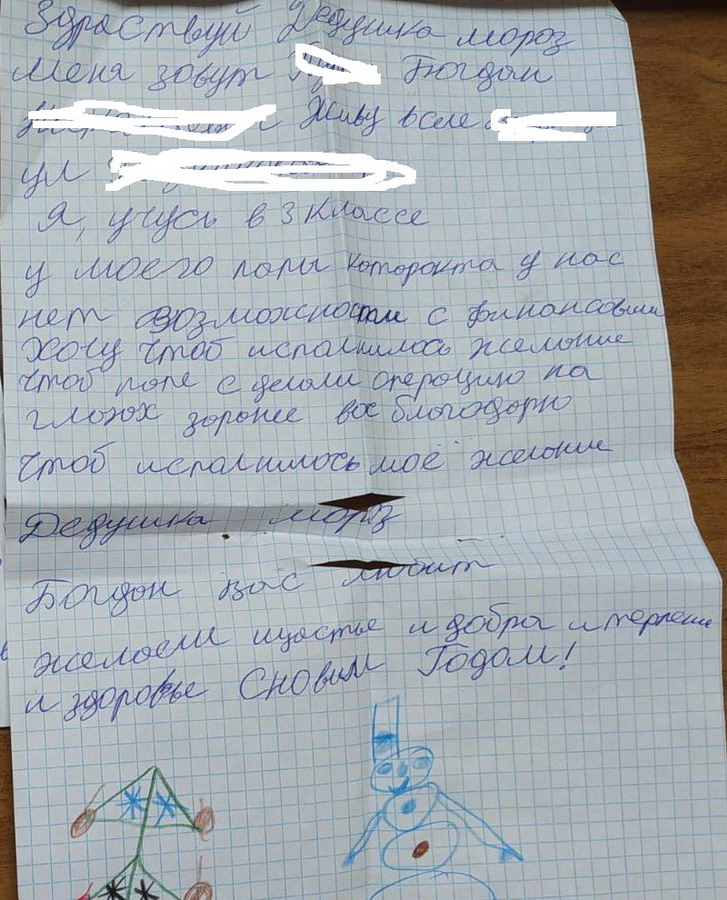 Здраствуй Дедушка мороз
Меня зовут Богдан
Живу в селе
ул
я, учусь в 3 классе
у моего папы каторакта у нас
нет возможности с финансовыми
хочу чтоб испалнилось желание
чтоб папе с делали операцию на
глазах заранее вас благодарю
чтоб испалнилось моё желание
Дедушка мороз
Богдан вас любит
желаем щастье и добра и терпени
и здоровье С новым Годом!